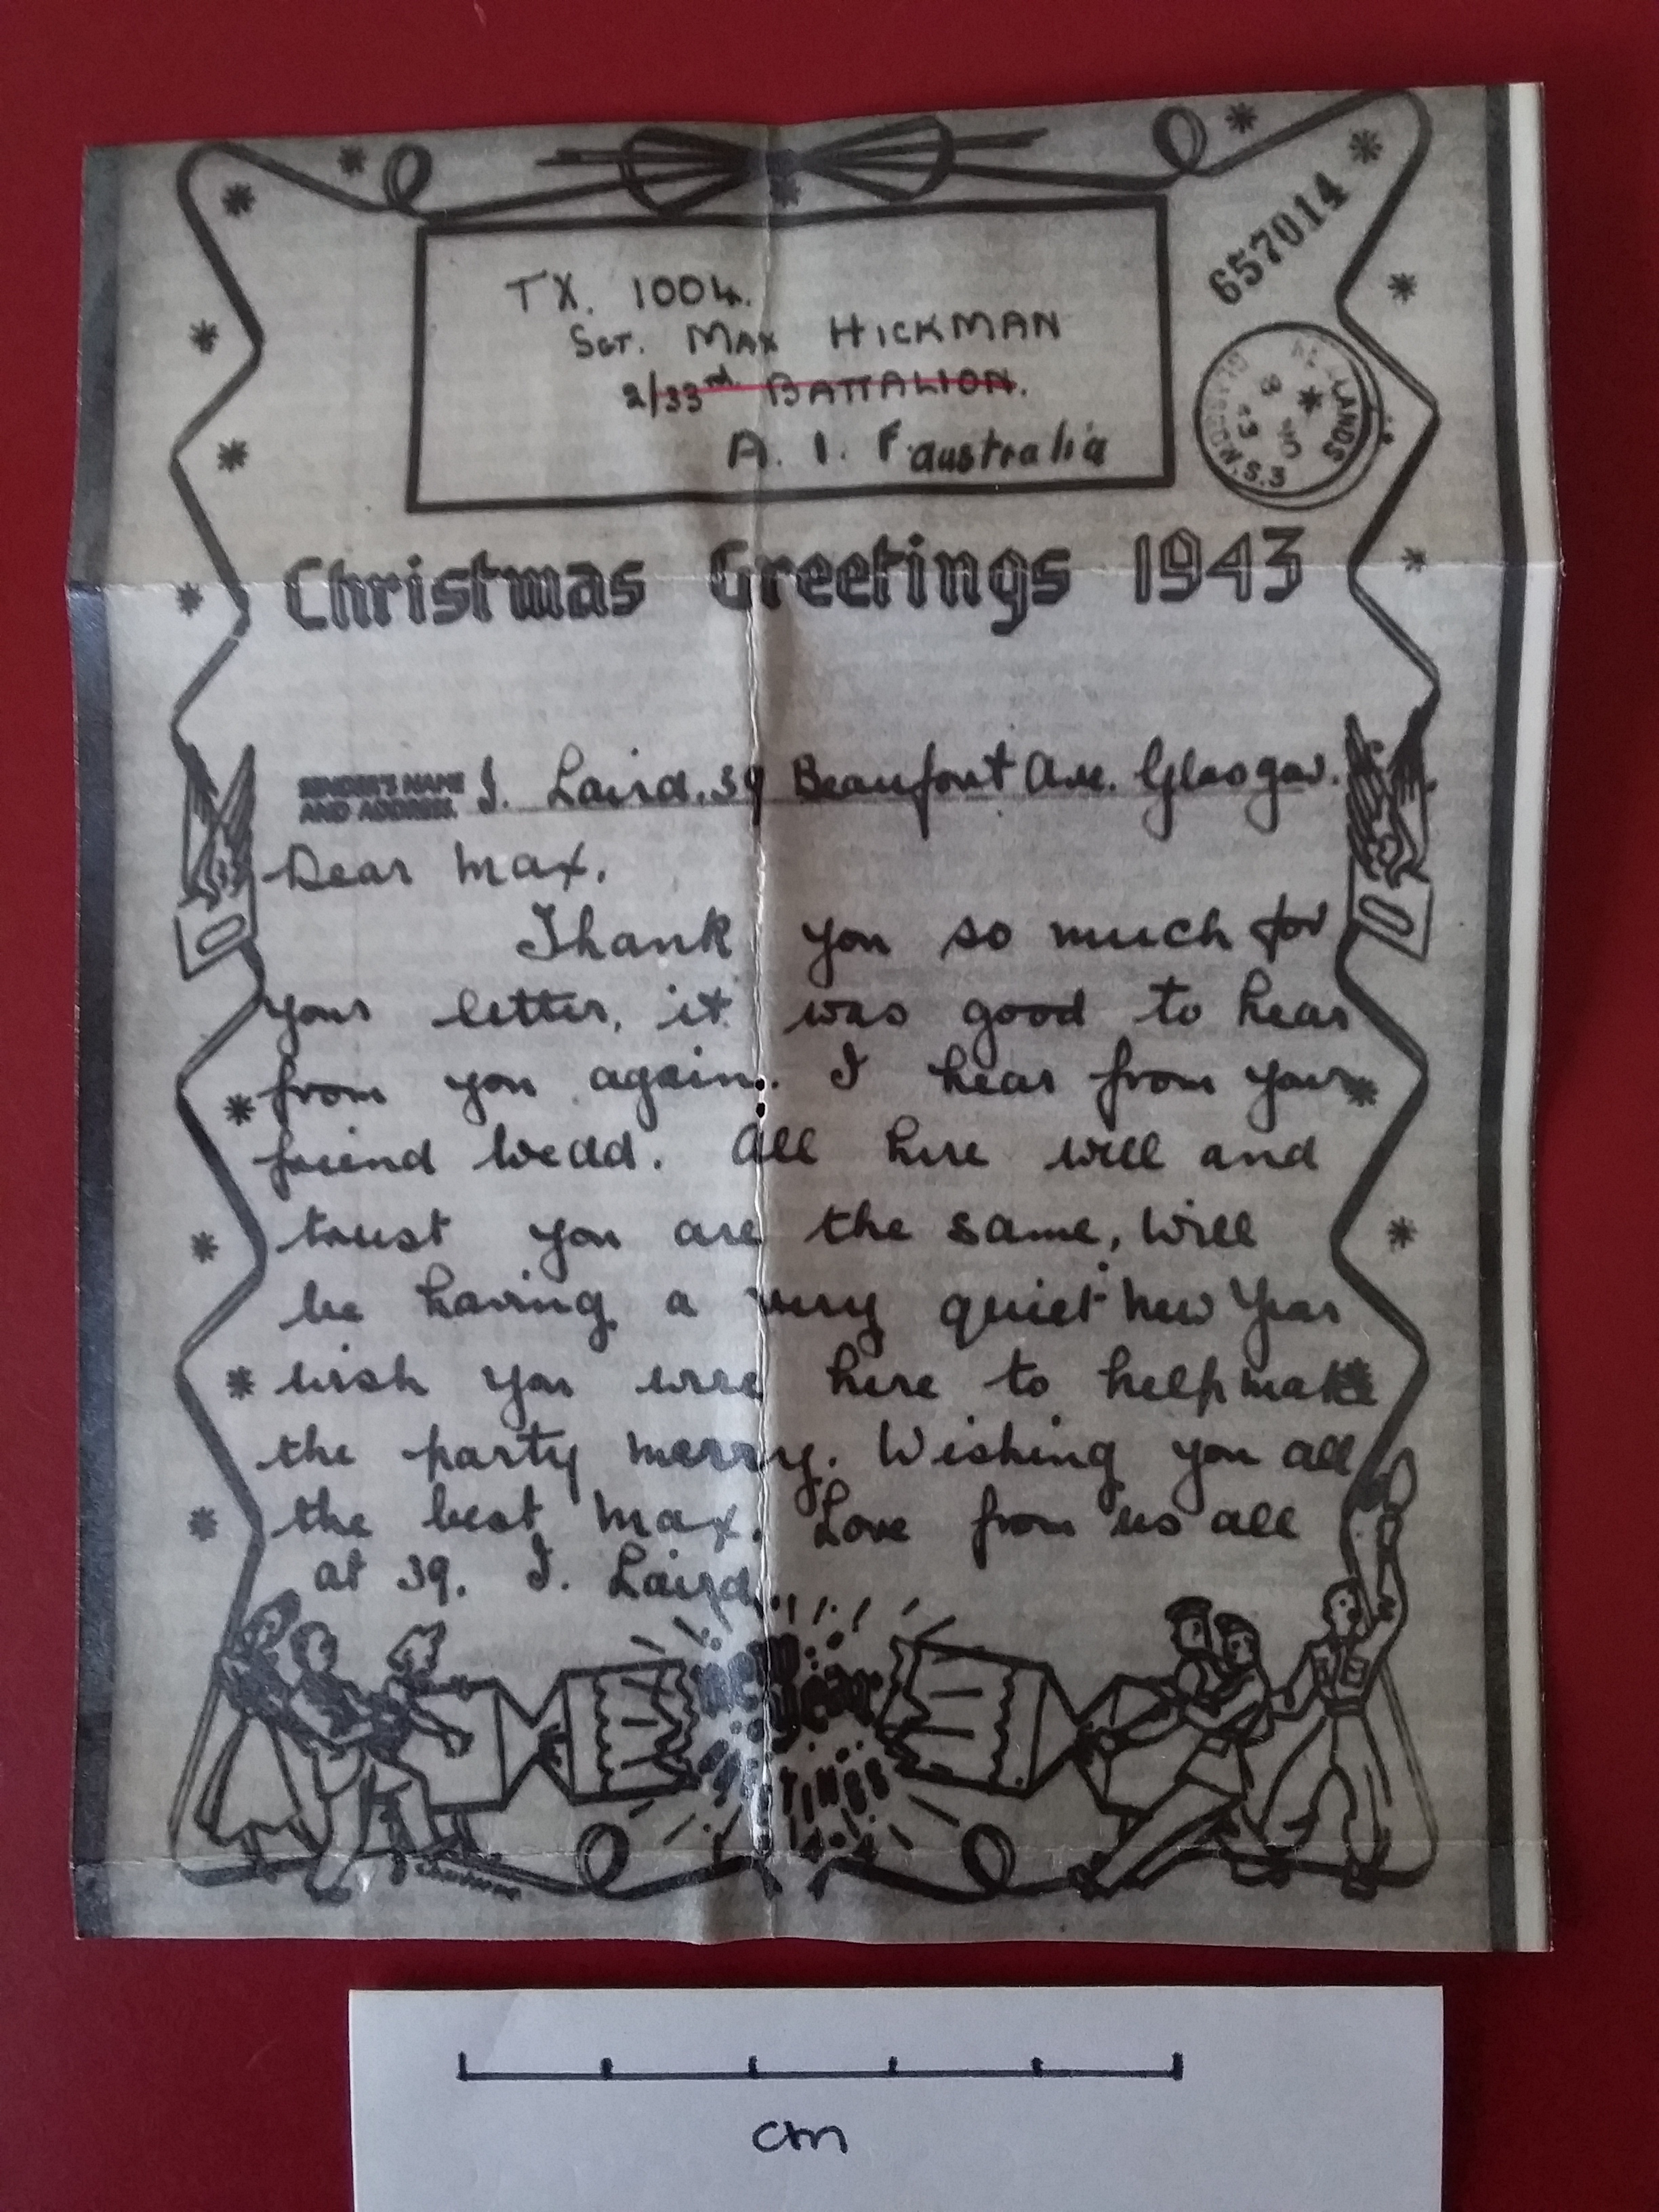 657014
TX. 1004.
Sgt. Max Hickman
2/33rd BATTALION.
A. I. F. Australia
NEWLANDS
S.3
Christmas Greetings 1943
SENDER'S NAME AND ADDRESS. J. Laird. 39 Beaufort Ave. Glasgow.
Dear Max.
Thank you so much for
your letter, it was good to hear
from you again. I hear from your
friend Wedd. All here well and
trust you are the same, Will
be having a very quiet New Year
wish you were here to help make
the party merry. Wishing you all
the best Max. Love from us all
at 39. J. Laird.
New Year
cm